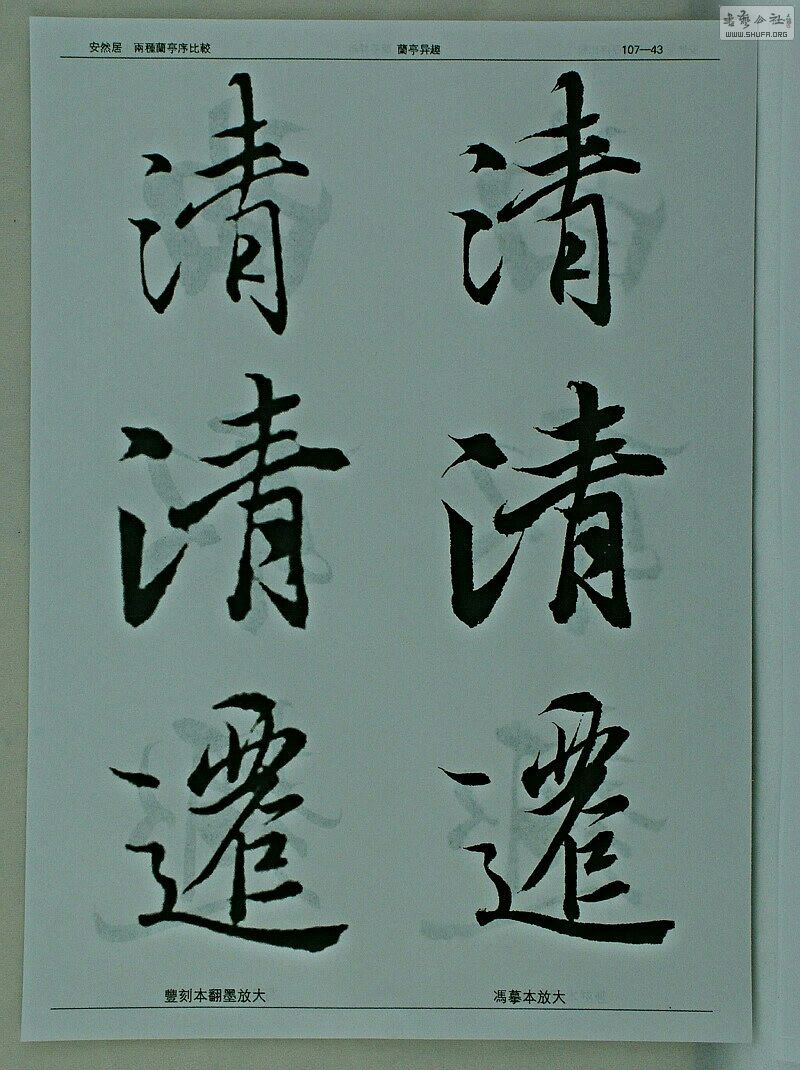 书艺公社
WWW.SHUFA.ORG
安然居 兩種蘭亭序比較 蘭亭异趣 107—43
清 清
清 清
遷 遷
豐刻本翻墨放大 馮摹本放大